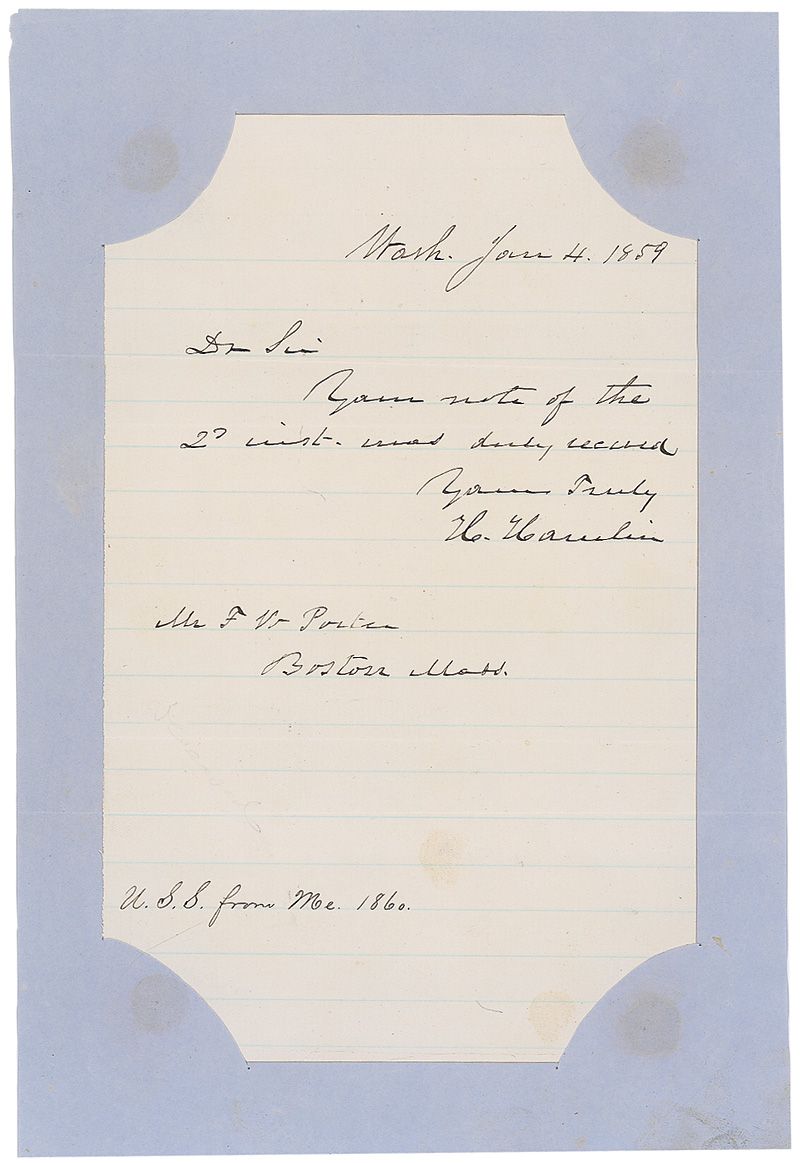 Wash. Jan 4. 1859
Dr Sir
Your note of the
2d inst. was duly recevd
Yours Truly
H. Hamlin
Mr F W Porter
Boston Mass.
U.S.S. from Me. 1860.